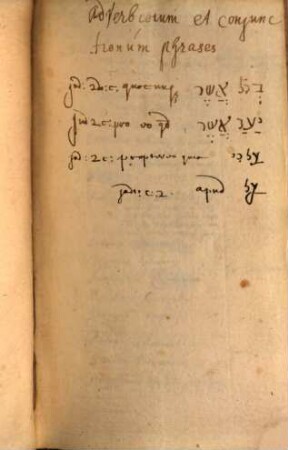 Adverbiorum et conjunc
tionum phrases
jud: 2 c: quocunq בְּכֹל אֲשֶׁר
jud 2 c: pro eo qd יַעַן אֲשֶׁר
jud: 2 c: propterea quia
judi: c. 2. apud